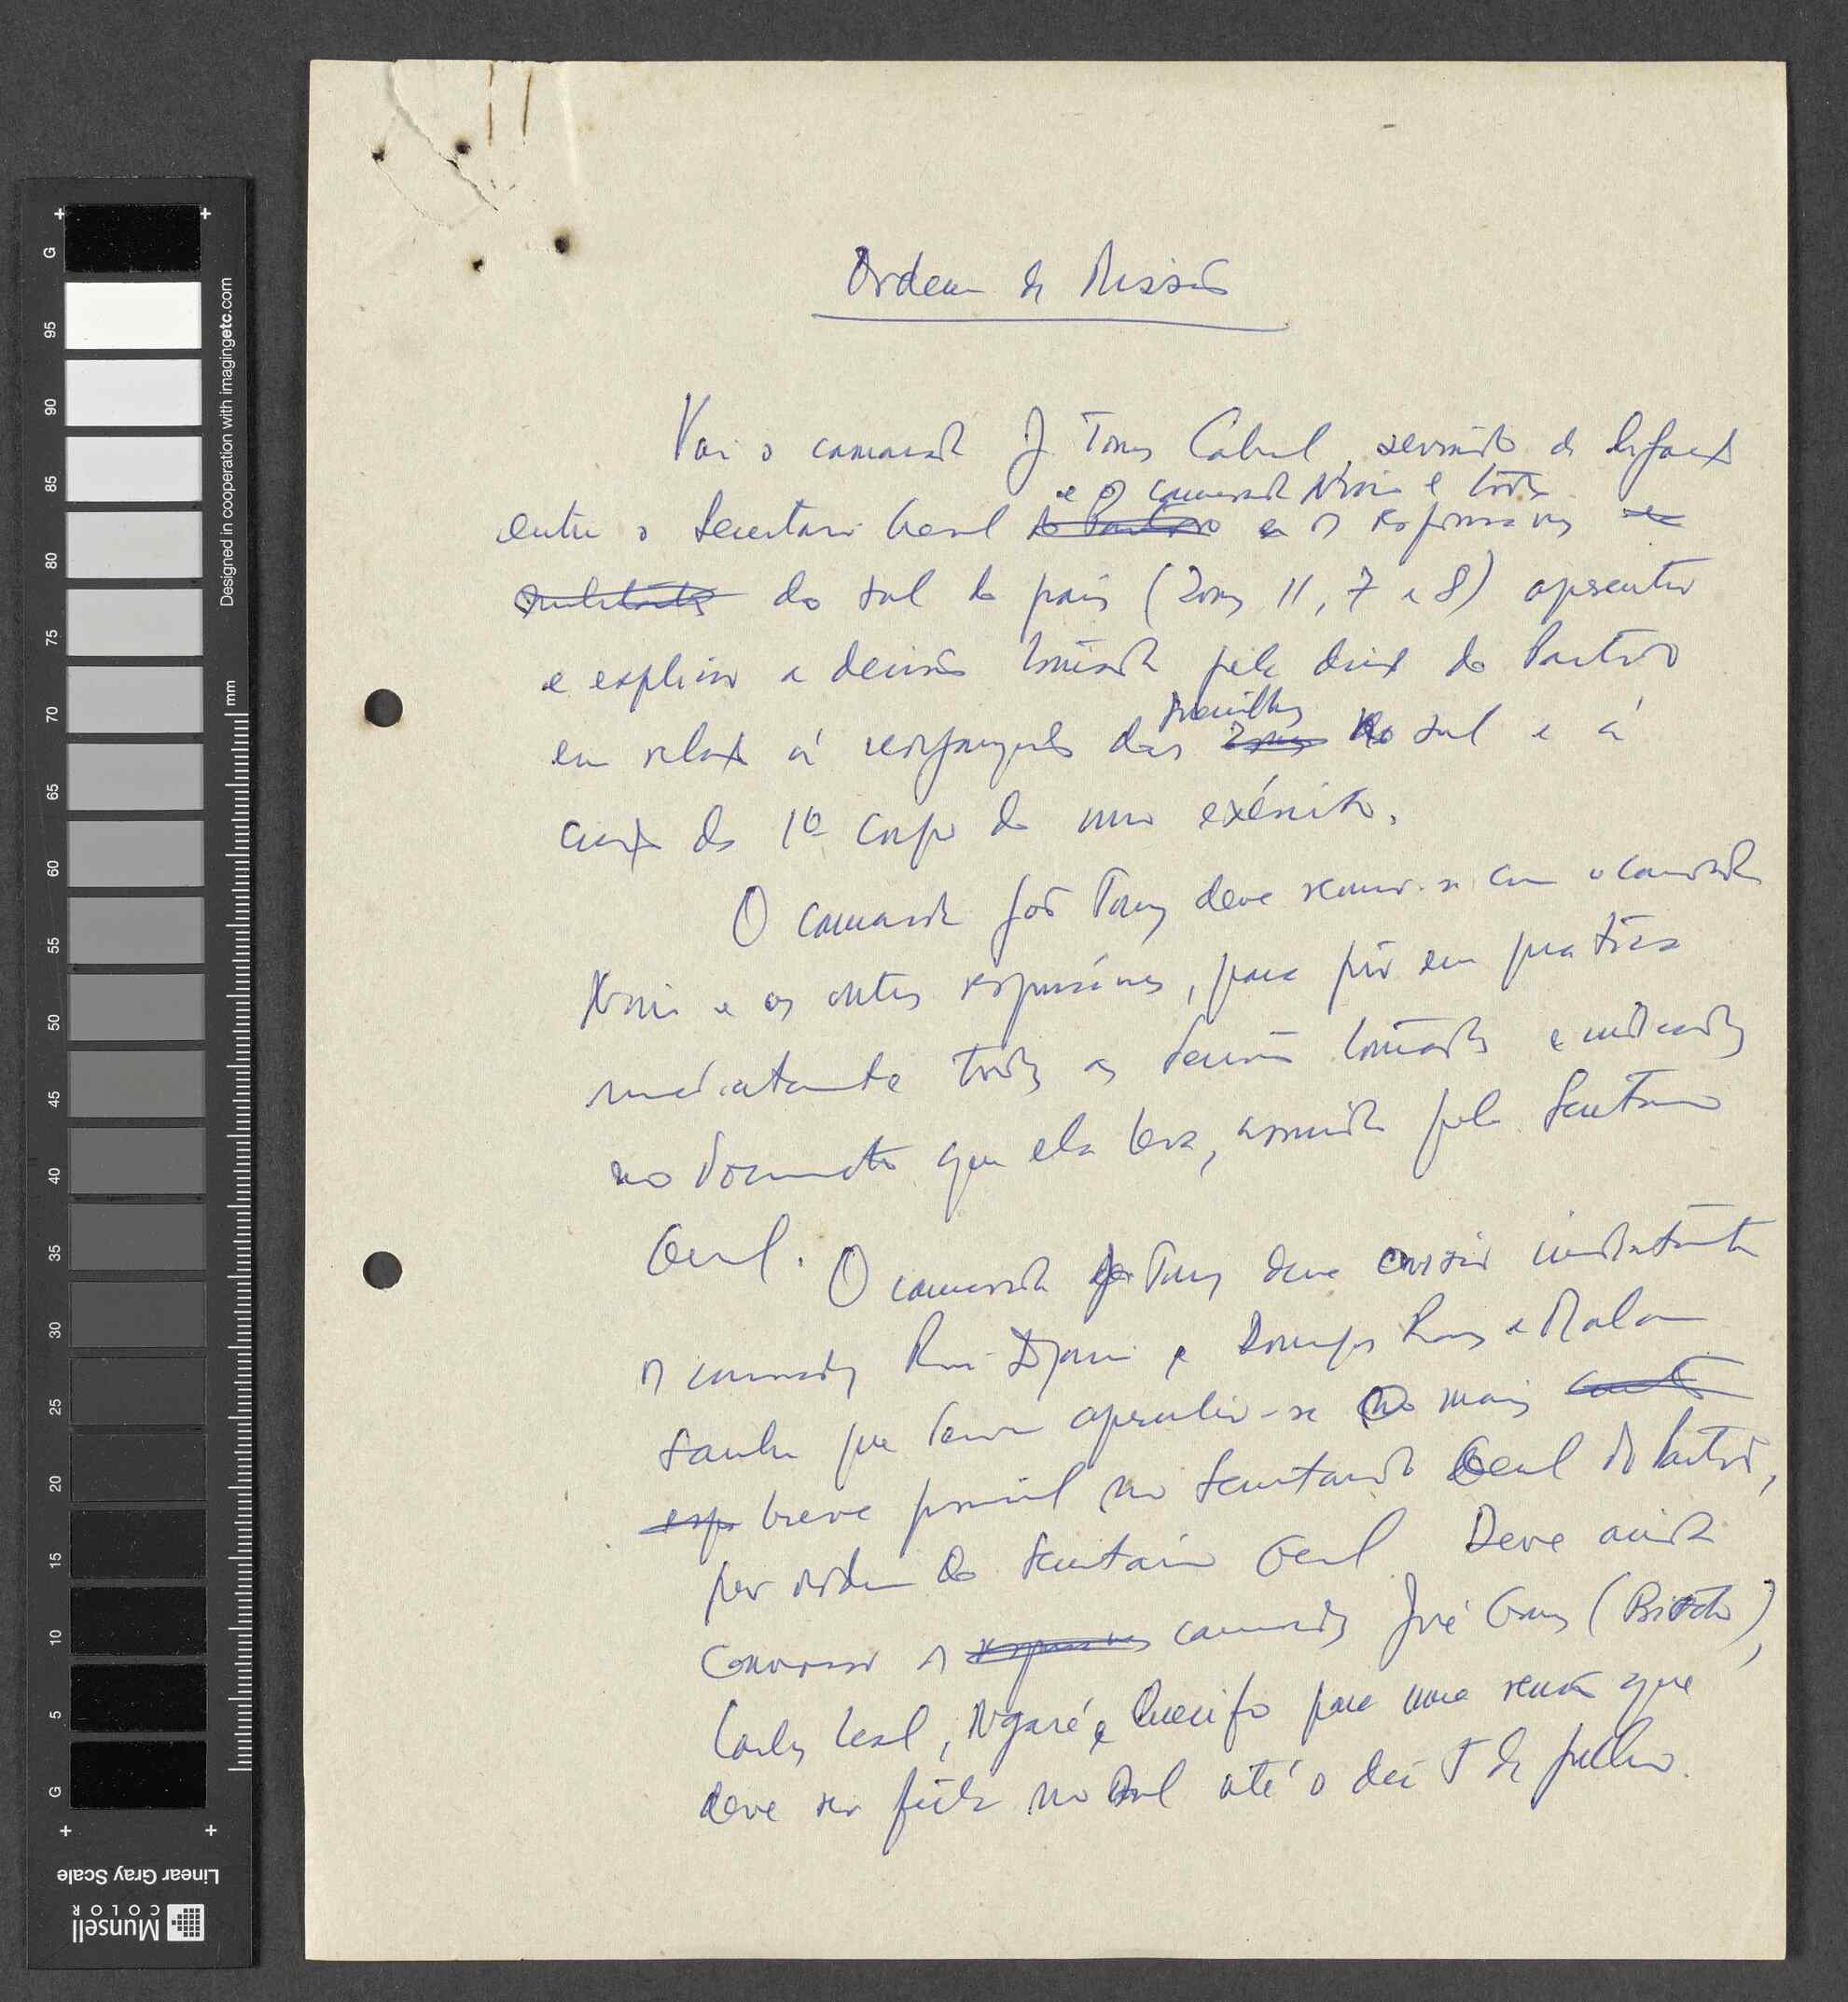 Ordem de Missão
Vai o camarada J. Tomás Cabral, servindo de ligação
e o camarada Nino e todos
entre o Secretário Geral do Partido e os responsáveis
do sul do país (Zonas 11, 7 e 8) apresentar
e explicar a decisão tomada pela direcção do Partido
guerrilhas
em relação à reorganização das zonas do sul e à
criação do 1º corpo do nosso exército.
O camarada João Tomás deve reunir-se com o camarada
Nino e os outros responsáveis, para pôr em prática
imediatamente todas as decisões tomadas e indicadas
no documento que ele leva, assinado pelo Secretário
Geral.
O camarada João Tomás deve enviar imediatamente
os camaradas Rui Djassi e Domingos Ramos e Malam
Sanha que devem apresentar-se o mais
breve possível no Secretariado Geral do Partido,
por ordem do Secretário Geral. Deve ainda
convocar os responsáveis camaradas José
Carlos Leal, Ngaré e Quecifo para uma reunião que
deve ser feita no Sul até o dia 5 de julho.
Designed in cooperation with imagingetc.com
mm
G 95 90 85 80 75 70 65 60 55 50 45 40 35 30 25 20 15 10 5 G
Linear Gray Scale
Munsell
COLOR